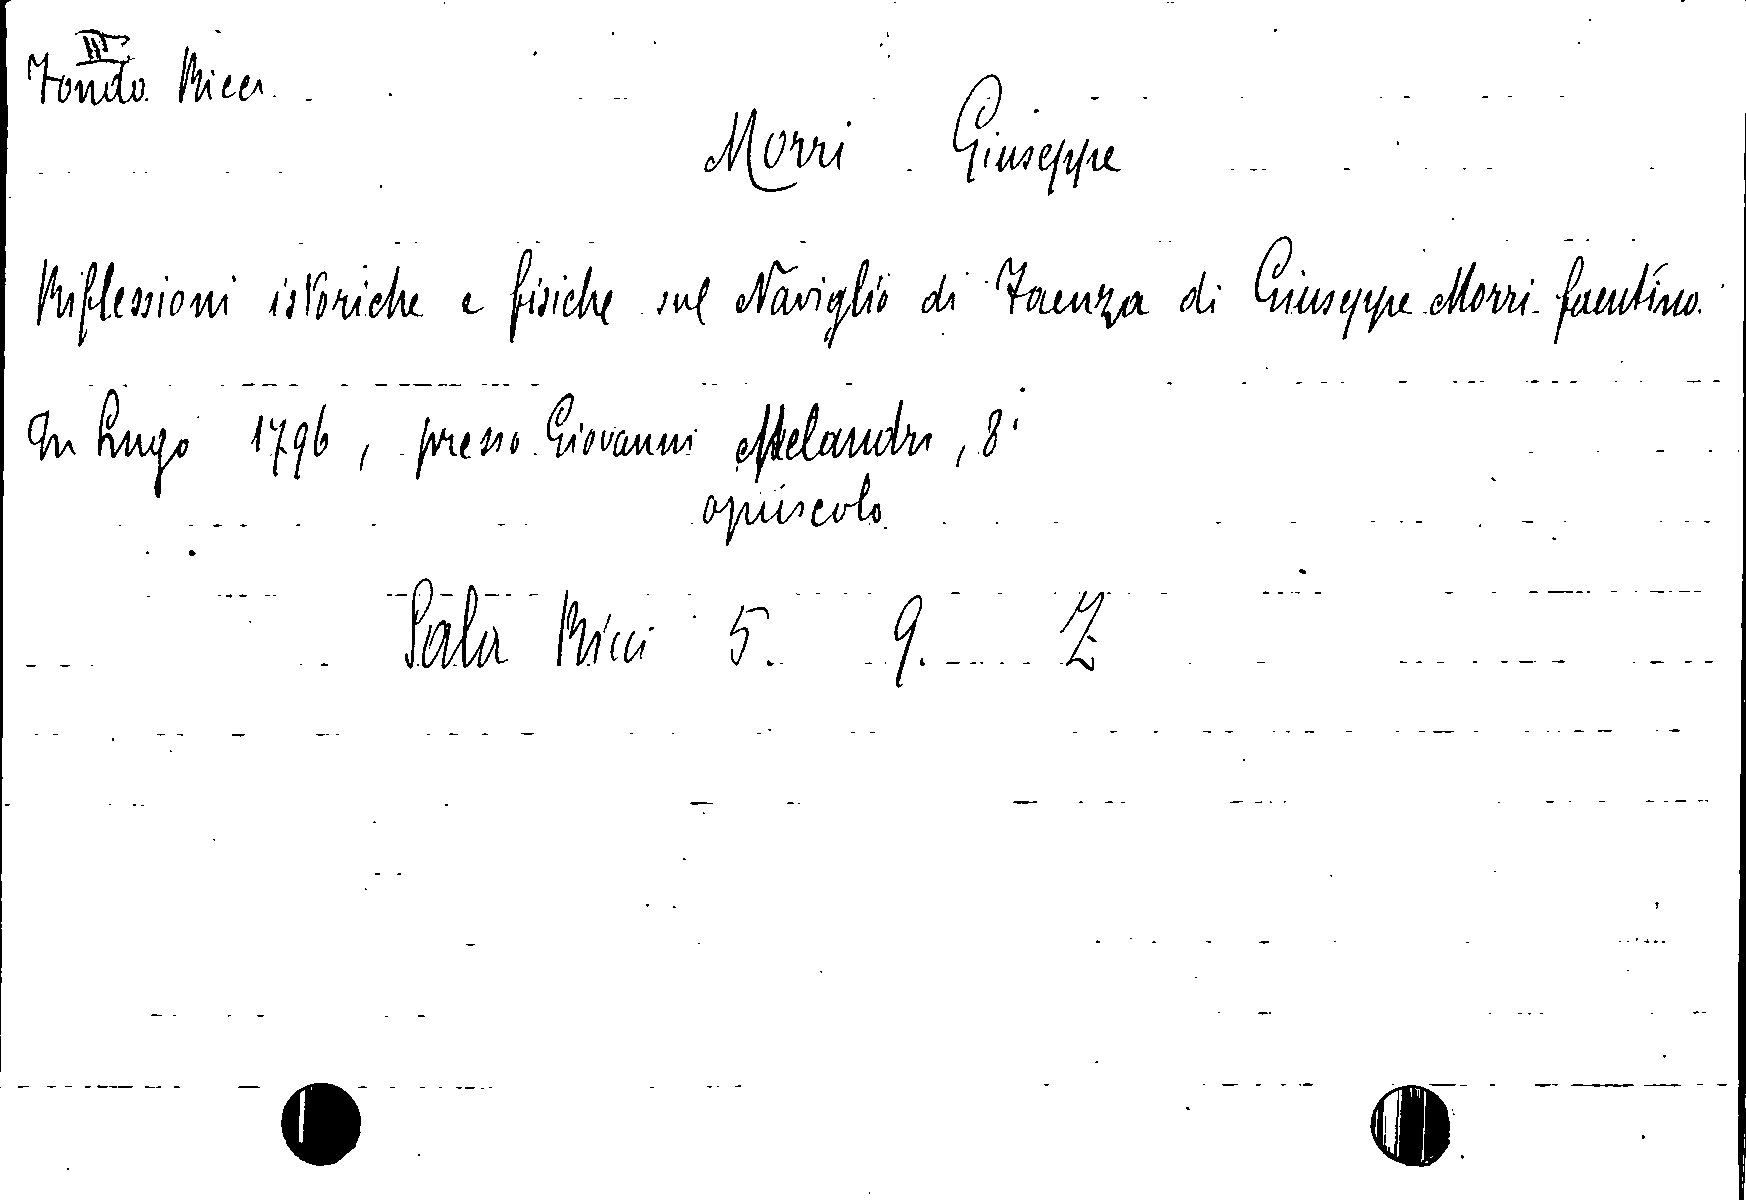 III
Fondo Ricci
Morri Giuseppe
Riflessioni istoriche e fisiche sul Naviglio di Faenza di Giuseppe Morri faentino.
In Lugo 1796, presso Giovanni Melandri, 8°
opuscolo
Sala Ricci 5. 9. Z